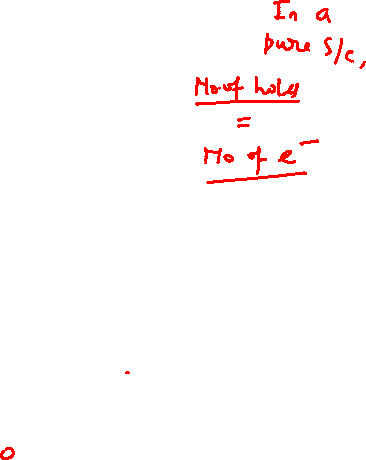 In a
pure S/C,
No of holes
=
No of e⁻